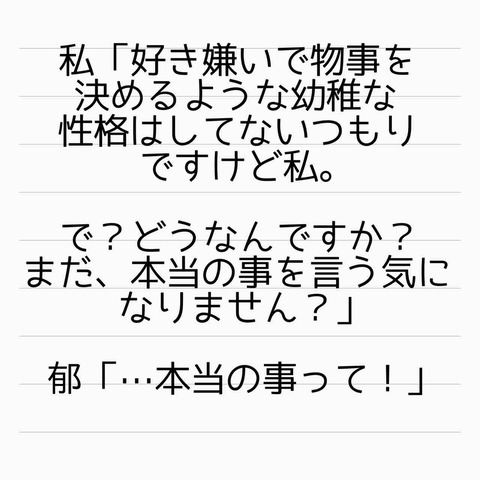 私「好き嫌いで物事を
決めるような幼稚な
性格はしてないつもり
ですけど私。
で？どうなんですか？
まだ、本当の事を言う気に
なりません？」
郁「…本当の事って！」